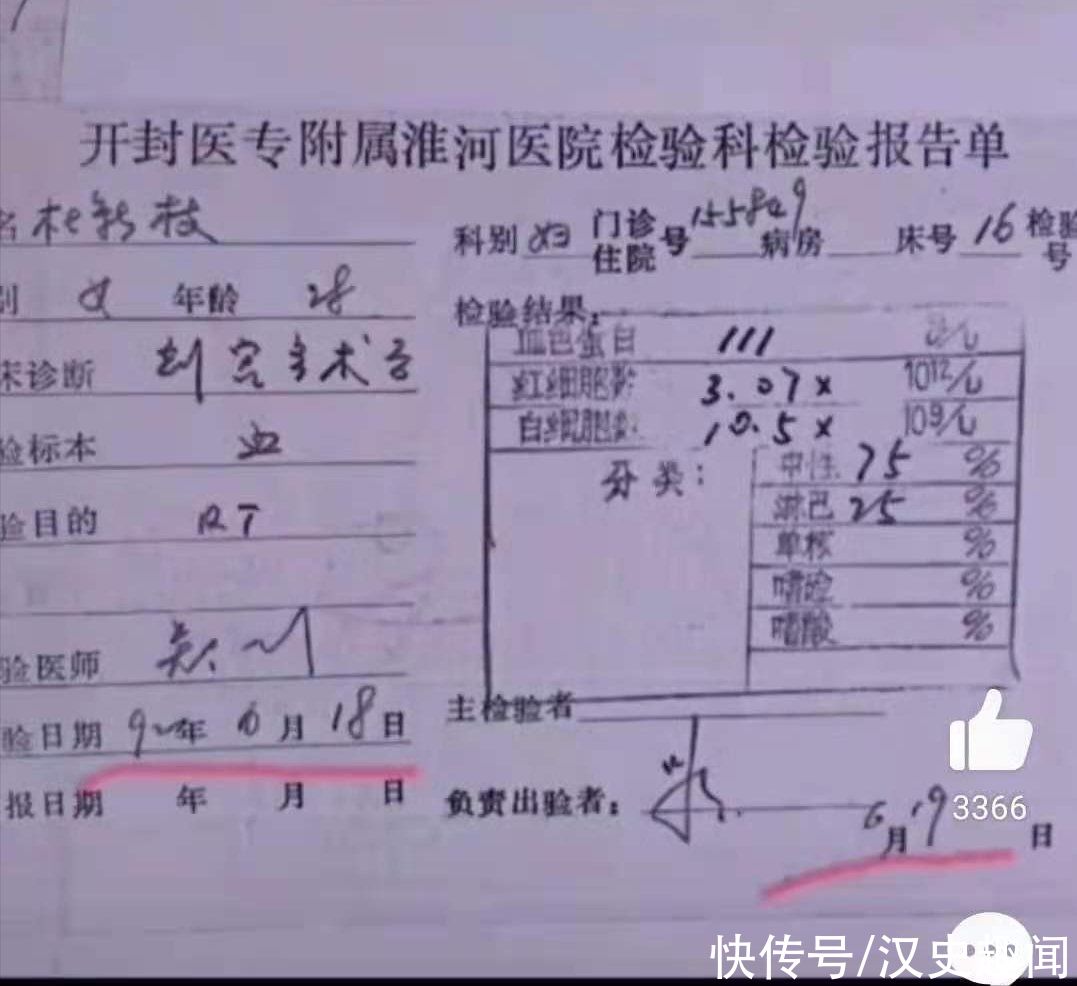 开封医专附属淮河医院检验科检验报告单
名 杜新枝
科别 妇 门诊 住院 号 155849 病房 床号 16 检验号
别 女 年龄 28
检验结果:
血色蛋白 111 g/L
床诊断 剖宫手术后
红细胞数 3.07 x 1012/L
白细胞数 10.5 x 109/L
验标本 血
分类: 中性 75 %
淋巴 25 %
验目的 RT
单核 %
嗜碱 %
嗜酸 %
验医师
主检验者
验日期 92年 6月 18日
报日期 年 月 日
负责出验者:
6月19日
3366
快传号/汉史 闻